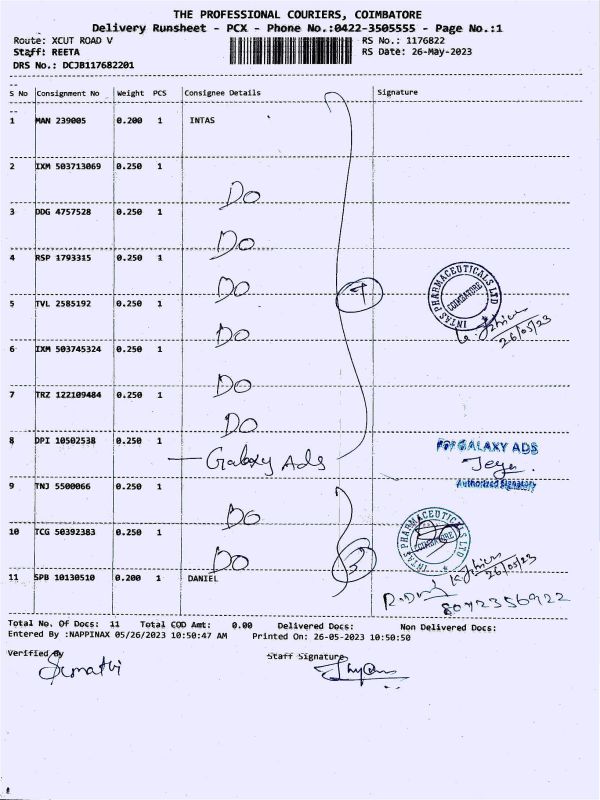 THE PROFESSIONAL COURIERS, COIMBATORE
Delivery Runsheet - PCX - Phone No.:0422-3505555 - Page No.:1
Route: XCUT ROAD V
RS No.: 1176822
Staff: REETA
RS Date: 26-May-2023
DRS No.: DCJB117682201
S No Consignment No Weight PCS Consignee Details Signature
1 MAN 239005 0.200 1 INTAS
2 IXM 503713069 0.250 1
Do
3 DDG 4757528 0.250 1
Do
4 RSP 1793315 0.250 1
Do
INTAS PHARMACEUTICALS LTD
COIMBATORE
5 TVL 2585192 0.250 1
26/05/23
Do
6 IXM 503745324 0.250 1
Do
7 TRZ 122109484 0.250 1
Do
8 DPI 10502538 0.250 1
For GALAXY ADS
Galaxy Ads
Jeya.
Authorized Signatory
9 TNJ 5500066 0.250 1
Do
10 TCG 50392383 0.250 1
PHARMACEUTICALS LTD
COIMBATORE
Do
26/05/23
11 SPB 10130510 0.200 1 DANIEL
8072356922
Total No. Of Docs: 11 Total COD Amt: 0.00 Delivered Docs: Non Delivered Docs:
Entered By :NAPPINAX 05/26/2023 10:50:47 AM Printed On: 26-05-2023 10:50:50
Verified By Staff Signature
Sumathi